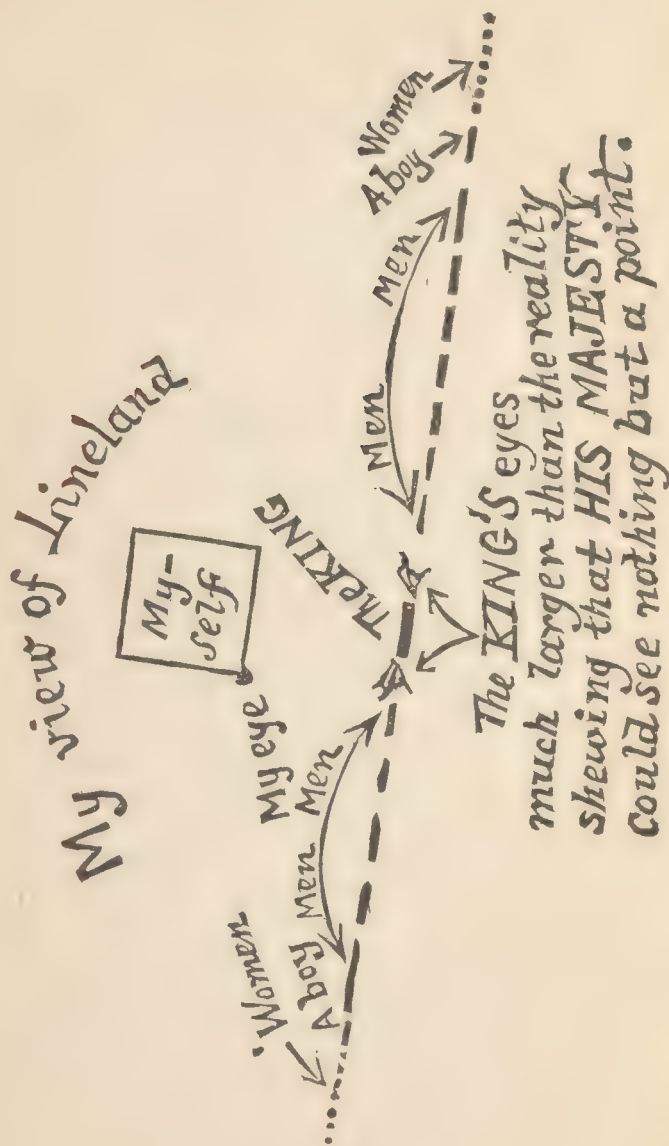 My view of Lineland
My-
self
My eye
The KING
Women
A boy
Men
Men
Men
Men
A boy
Women
The KING'S eyes
much larger than the reality
shewing that HIS MAJESTY
Could see nothing but a point.